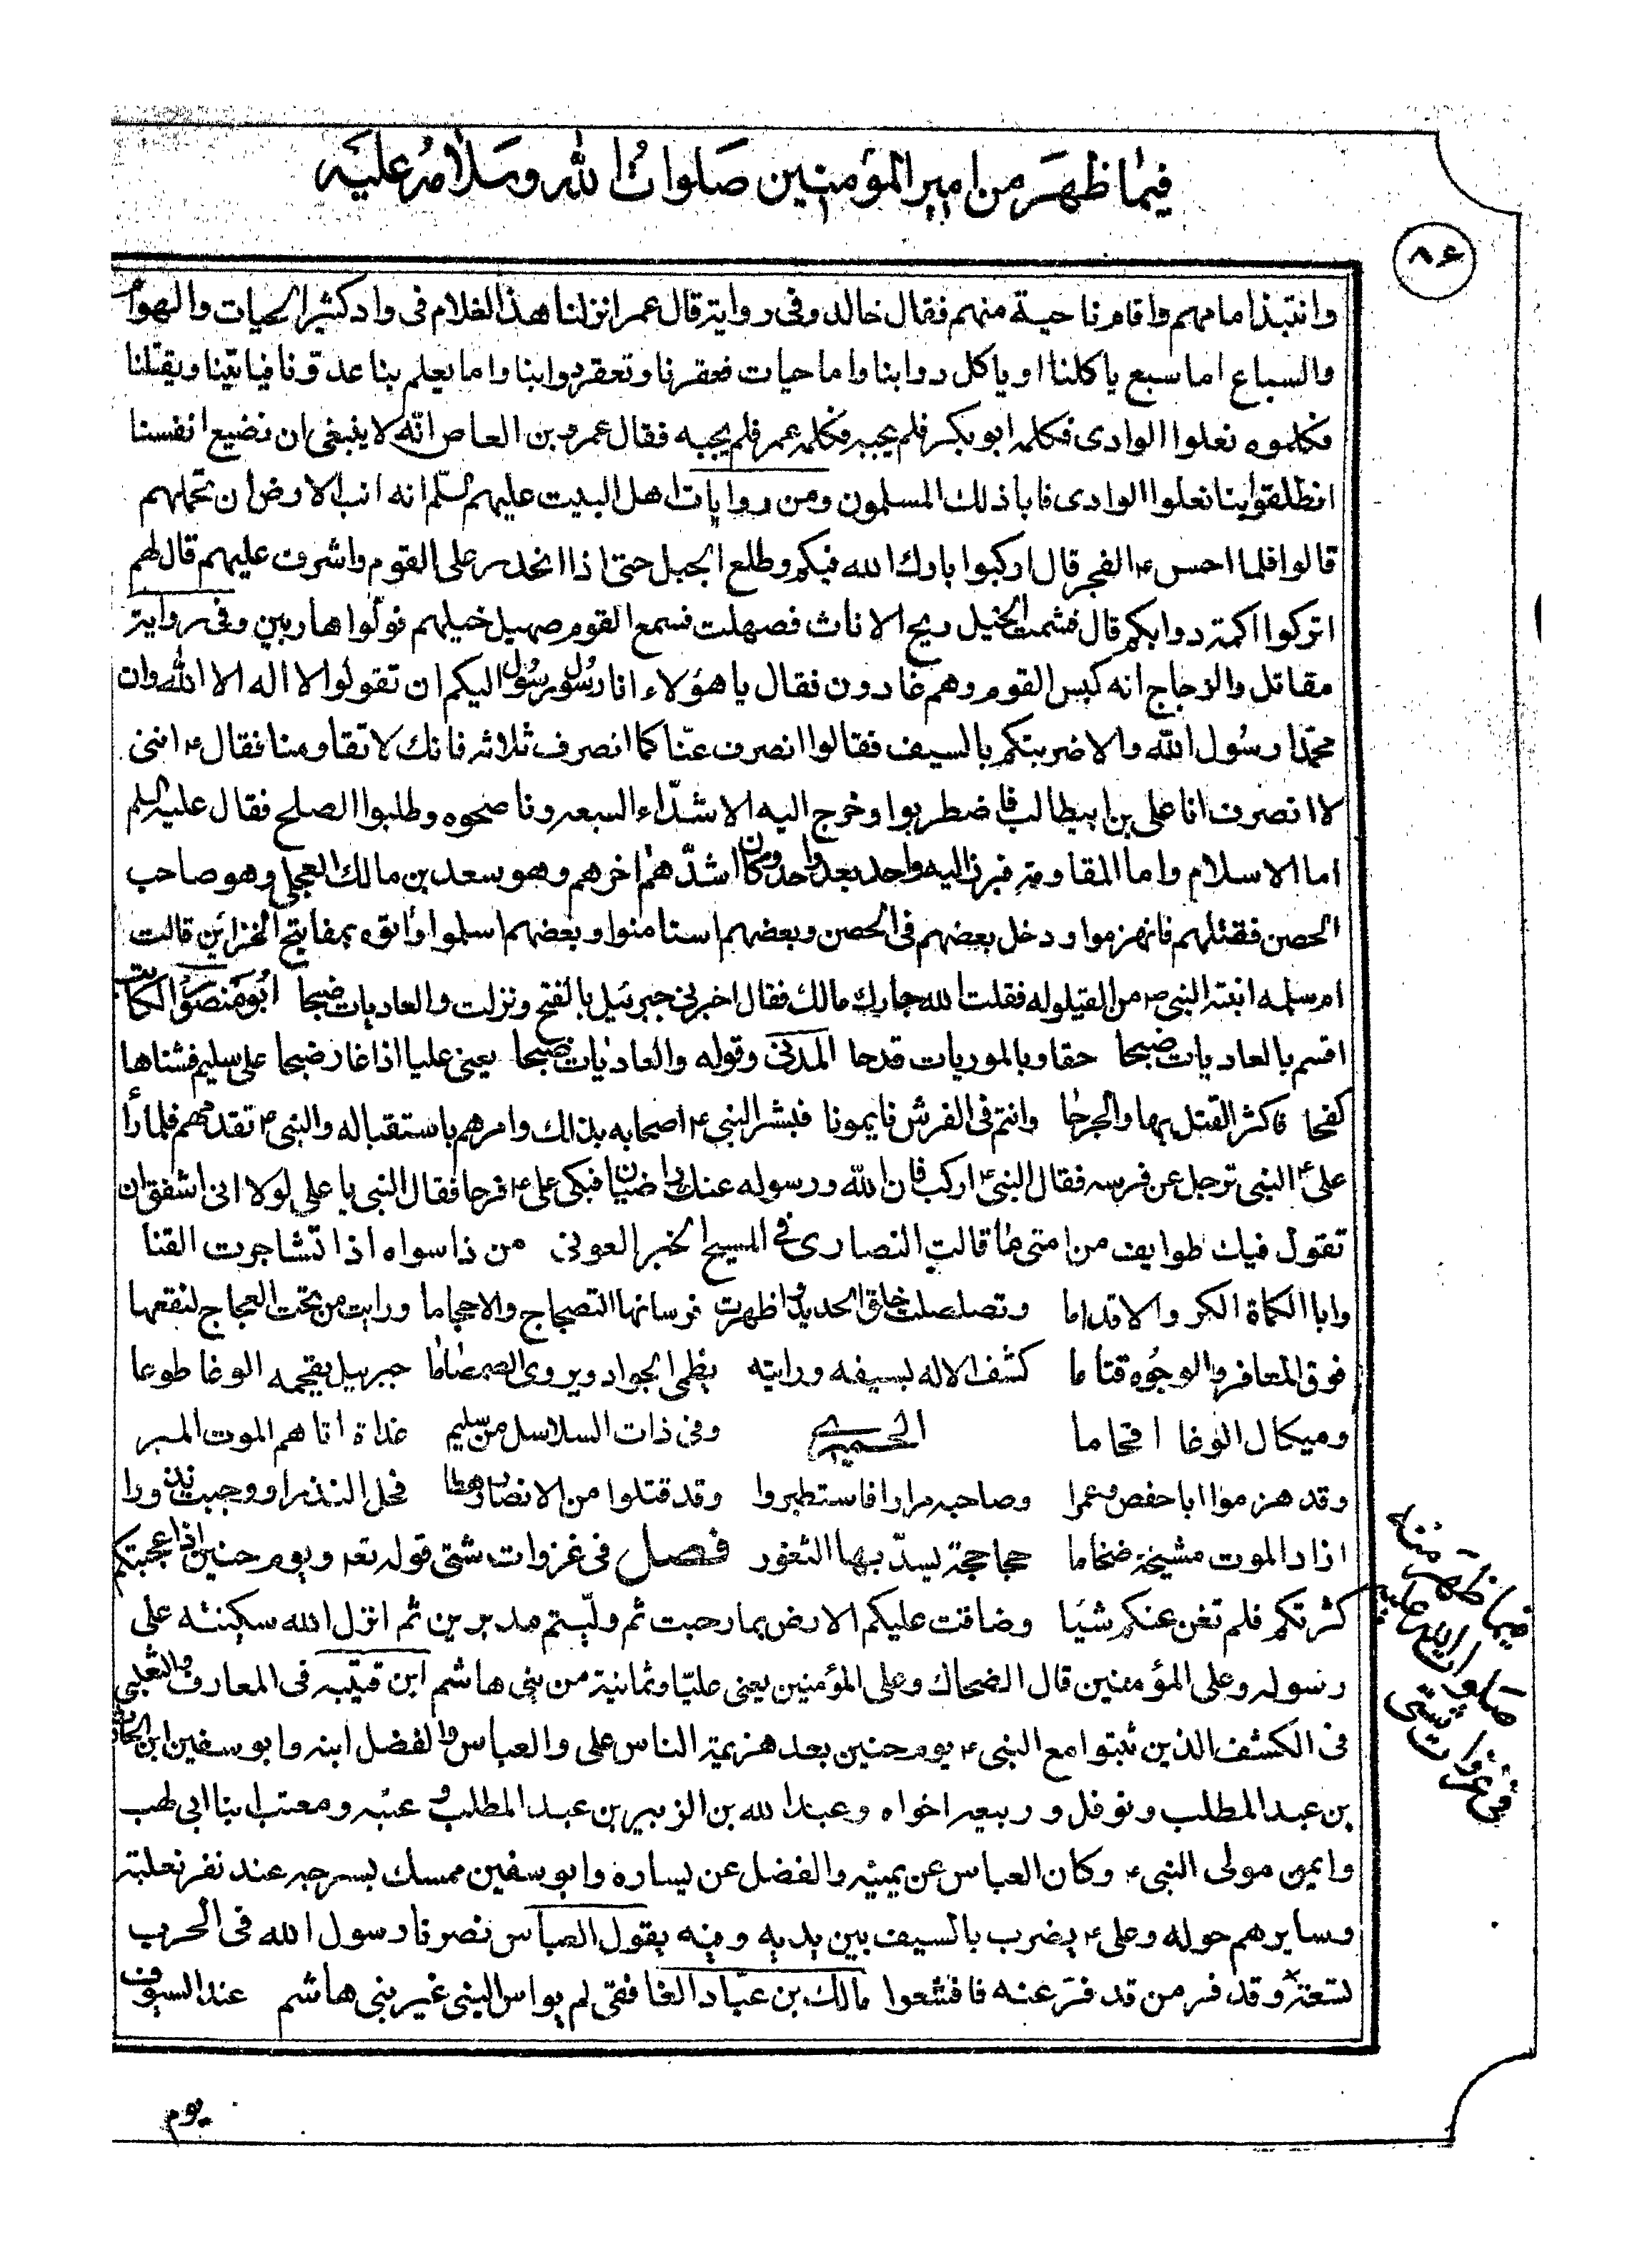 فيما ظهر من امير المؤمنين صلوات الله وسلامه عليه
٨٦
وانتبذ امامهم واقام ناحية منهم فقال خالد وفى رواية قال عمر انزلنا هذا الغلام فى واد كثير الحيات والهوام
والسباع اما سبع ياكلنا او ياكل دوابنا واما حيات تعقرنا وتعقر دوابنا واما يعلم بنا عدونا فياتينا ويقتلنا
فكلموه نعلوا الوادى فكلمه ابو بكر فلم يجبه فكلمه عمر فلم يجبه فقال عمرو بن العاص انه لا ينبغى ان نضيع انفسنا
انطلقوا بنا نعلوا الوادى فابا ذلك المسلمون ومن روايات اهل البيت عليهم السلم انه ابت الارض ان تحملهم
قالوا فلما احس ع الفجر قال اركبوا بارك الله فيكم وطلع الجبل حتى اذا انحدر على القوم واشرف عليهم قال لهم
اتركوا اكمة دوابكم قال فشمت الخيل ريح الاناث فصهلت فسمع القوم صهيل خيلهم فولوا هاربين وفى رواية
مقاتل والزجاج انه كبس القوم وهم غادون فقال يا هؤلاء انا رسول رسول الله اليكم ان تقولوا لا اله الا الله وان
محمدا رسول الله والا ضربتكم بالسيف فقالوا انصرف عنا كما انصرف ثلاثة فانك لا تقاومنا فقال ع اننى
لا انصرف انا على بن ابيطالب فاضطربوا وخرج اليه الاشداء السبعة وناصحوه وطلبوا الصلح فقال عليه السلم
اما الاسلام واما المقاومة فبرز اليه واحد بعد واحد وكان اشدهم اخرهم وهو سعد بن مالك العجلى وهو صاحب
الحصن فقتلهم فانهزموا ودخل بعضهم فى الحصن وبعضهم استامنوا وبعضهم اسلموا واتوه بمفاتيح الخزاين قالت
ام سلمه انتبه النبى ص من القيلوله فقلت الله جارك مالك فقال اخبرنى جبرئيل بالفتح ونزلت والعاديات ضبحا ابو منصور الكاتب
اقسم بالعاديات ضبحا حقا وبالموريات قدحا المدنى وقوله والعاديات ضبحا يعنى عليا اذا غار ضبحا على سليم فشناها
كفحا فاكثر القتل بها والجرحا وانتم فى الفرش نايمونا فبشر النبى ع اصحابه بذلك وامرهم باستقباله والنبى ع تقدمهم فلما رأ
على ع النبى ترجل عن فرسه فقال النبى ع اركب فان الله ورسوله عنك راضيان فبكى على ع فرحا فقال النبى يا على لولا انى اشفق ان
تقول فيك طوايف من امتى ما قالت النصارى فى المسيح الخبر العونى من ذا سواه اذا تشاجرت القنا
وابا الكماة الكر والاقداما وتصلصلت حلق الحديد واظهرت فرسانها التصجاج والاحجاما ورايت من تحت العجاج لنقعها
فوق المغافر والوجوه قتاما كشف الاله بسيفه ورايته يظمى الجواد ويروى الصمصاما جبريل يقحمه الوغا طوعا
وميكال الوغا اقحاما الحميرى وفى ذات السلاسل من سليم غداة اتاهم الموت المبير
وقد هزموا ابا حفص وعمرا وصاحبه مرارا فاستطيروا وقد قتلوا من الانصار رهطا فحل النذر او وجبت نذورا
اذاد الموت مشيخة ضخاما حجاجحة يسد بها الثغور فصل فى غزوات شتى قوله تعه ويوم حنين اذ اعجبتكم
كثرتكم فلم تغن عنكم شيئا وضاقت عليكم الارض بما رحبت ثم وليتم مدبرين ثم انزل الله سكينته على
رسوله وعلى المؤمنين قال الضحاك وعلى المؤمنين يعنى عليا وثمانية من بنى هاشم ابن قتيبه فى المعارف والثعلبى
فى الكشف الذين ثبتوا مع النبى ع يوم حنين بعد هزيمة الناس على والعباس والفضل ابنه وابو سفين ابن الحارث
بن عبد المطلب ونوفل وربيعه اخواه وعبد الله بن الزبير بن عبد المطلب وعتبه ومعتب ابنا ابى لهب
وايمن مولى النبى ع وكان العباس عن يمينه والفضل عن يساره وابو سفين ممسك بسرجه عند نفر نعلبة
وسايرهم حوله وعلى ع يضرب بالسيف بين يديه وفيه يقول العباس نصرنا رسول الله فى الحرب
تسعة وقد فر من قد فر عنه فاقشعوا مالك بن عباد الغافقى لم يواس النبى غير بنى هاشم عند السيوف
يوم
فيما ظهر منه
صلوات الله عليه
فى غزوات شتى